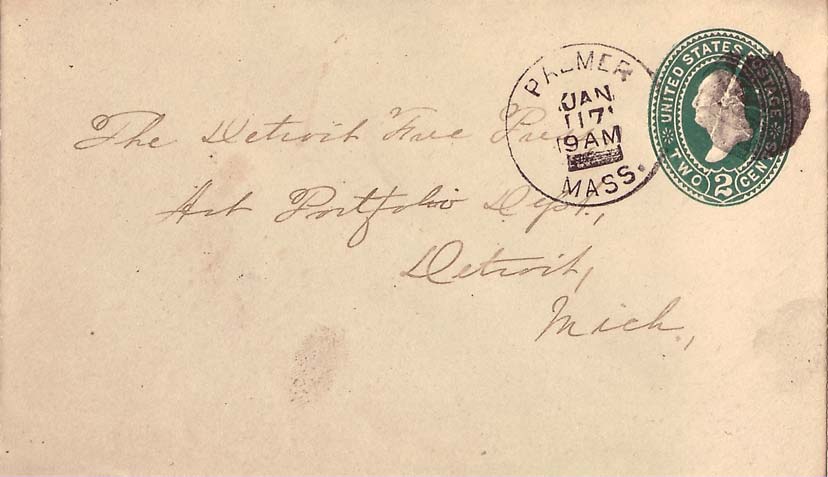 PALMER
JAN
17
9AM
MASS.
UNITED STATES POSTAGE
TWO 2 CENTS
The Detroit Free Press
Art Portfolio Dept,
Detroit,
Mich,